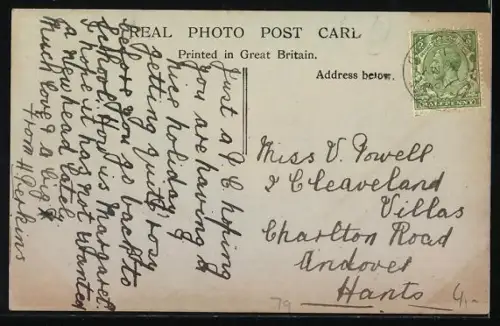 REAL PHOTO POST CARD
Printed in Great Britain.
Address below.
Just a P.C. hoping
you are having a
nice holiday &
getting quite rosy
before you go back to
school. How is Margaret.
I hope it has not wanted
a new head lately.
Much love & a big X
From H Perkins
Miss V. Powell
2 Cleaveland
Villas
Charlton Road
Andover
Hants
79
4,-
HALFPENNY